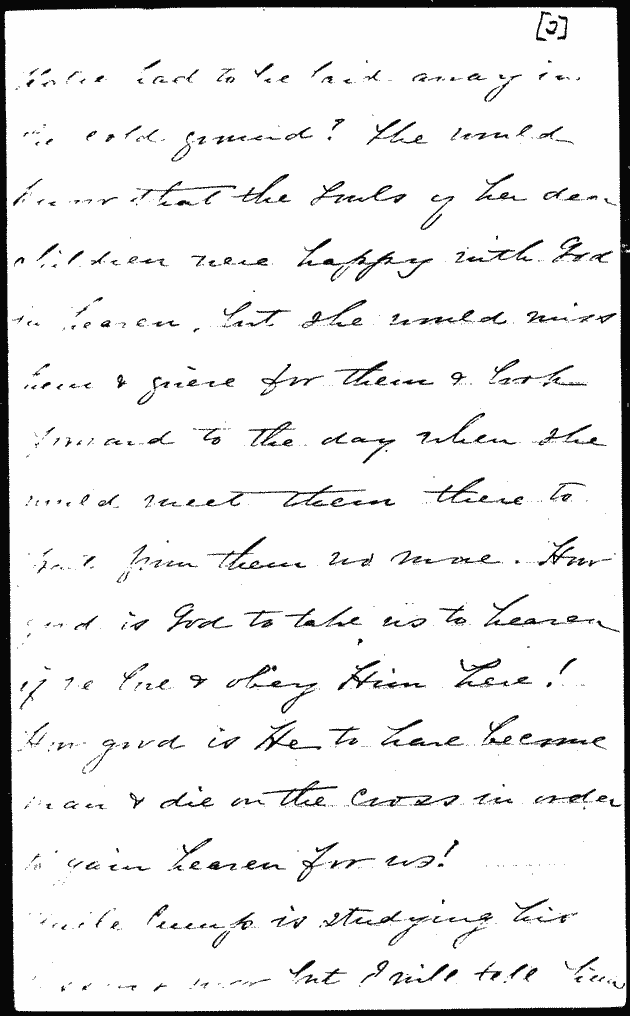 [3]
Katie had to be laid away in
the cold ground? She would
know that the souls of her dear
children were happy with God
in heaven, but she would miss
them & grieve for them & look
forward to the day when she
would meet them there to
part from them no more. How
good is God to take us to heaven
if we love & obey Him here!
How good is He to have become
man & die on the Cross in order
to gain heaven for us!
Uncle Cump is studying his
lessons now but I will tell him